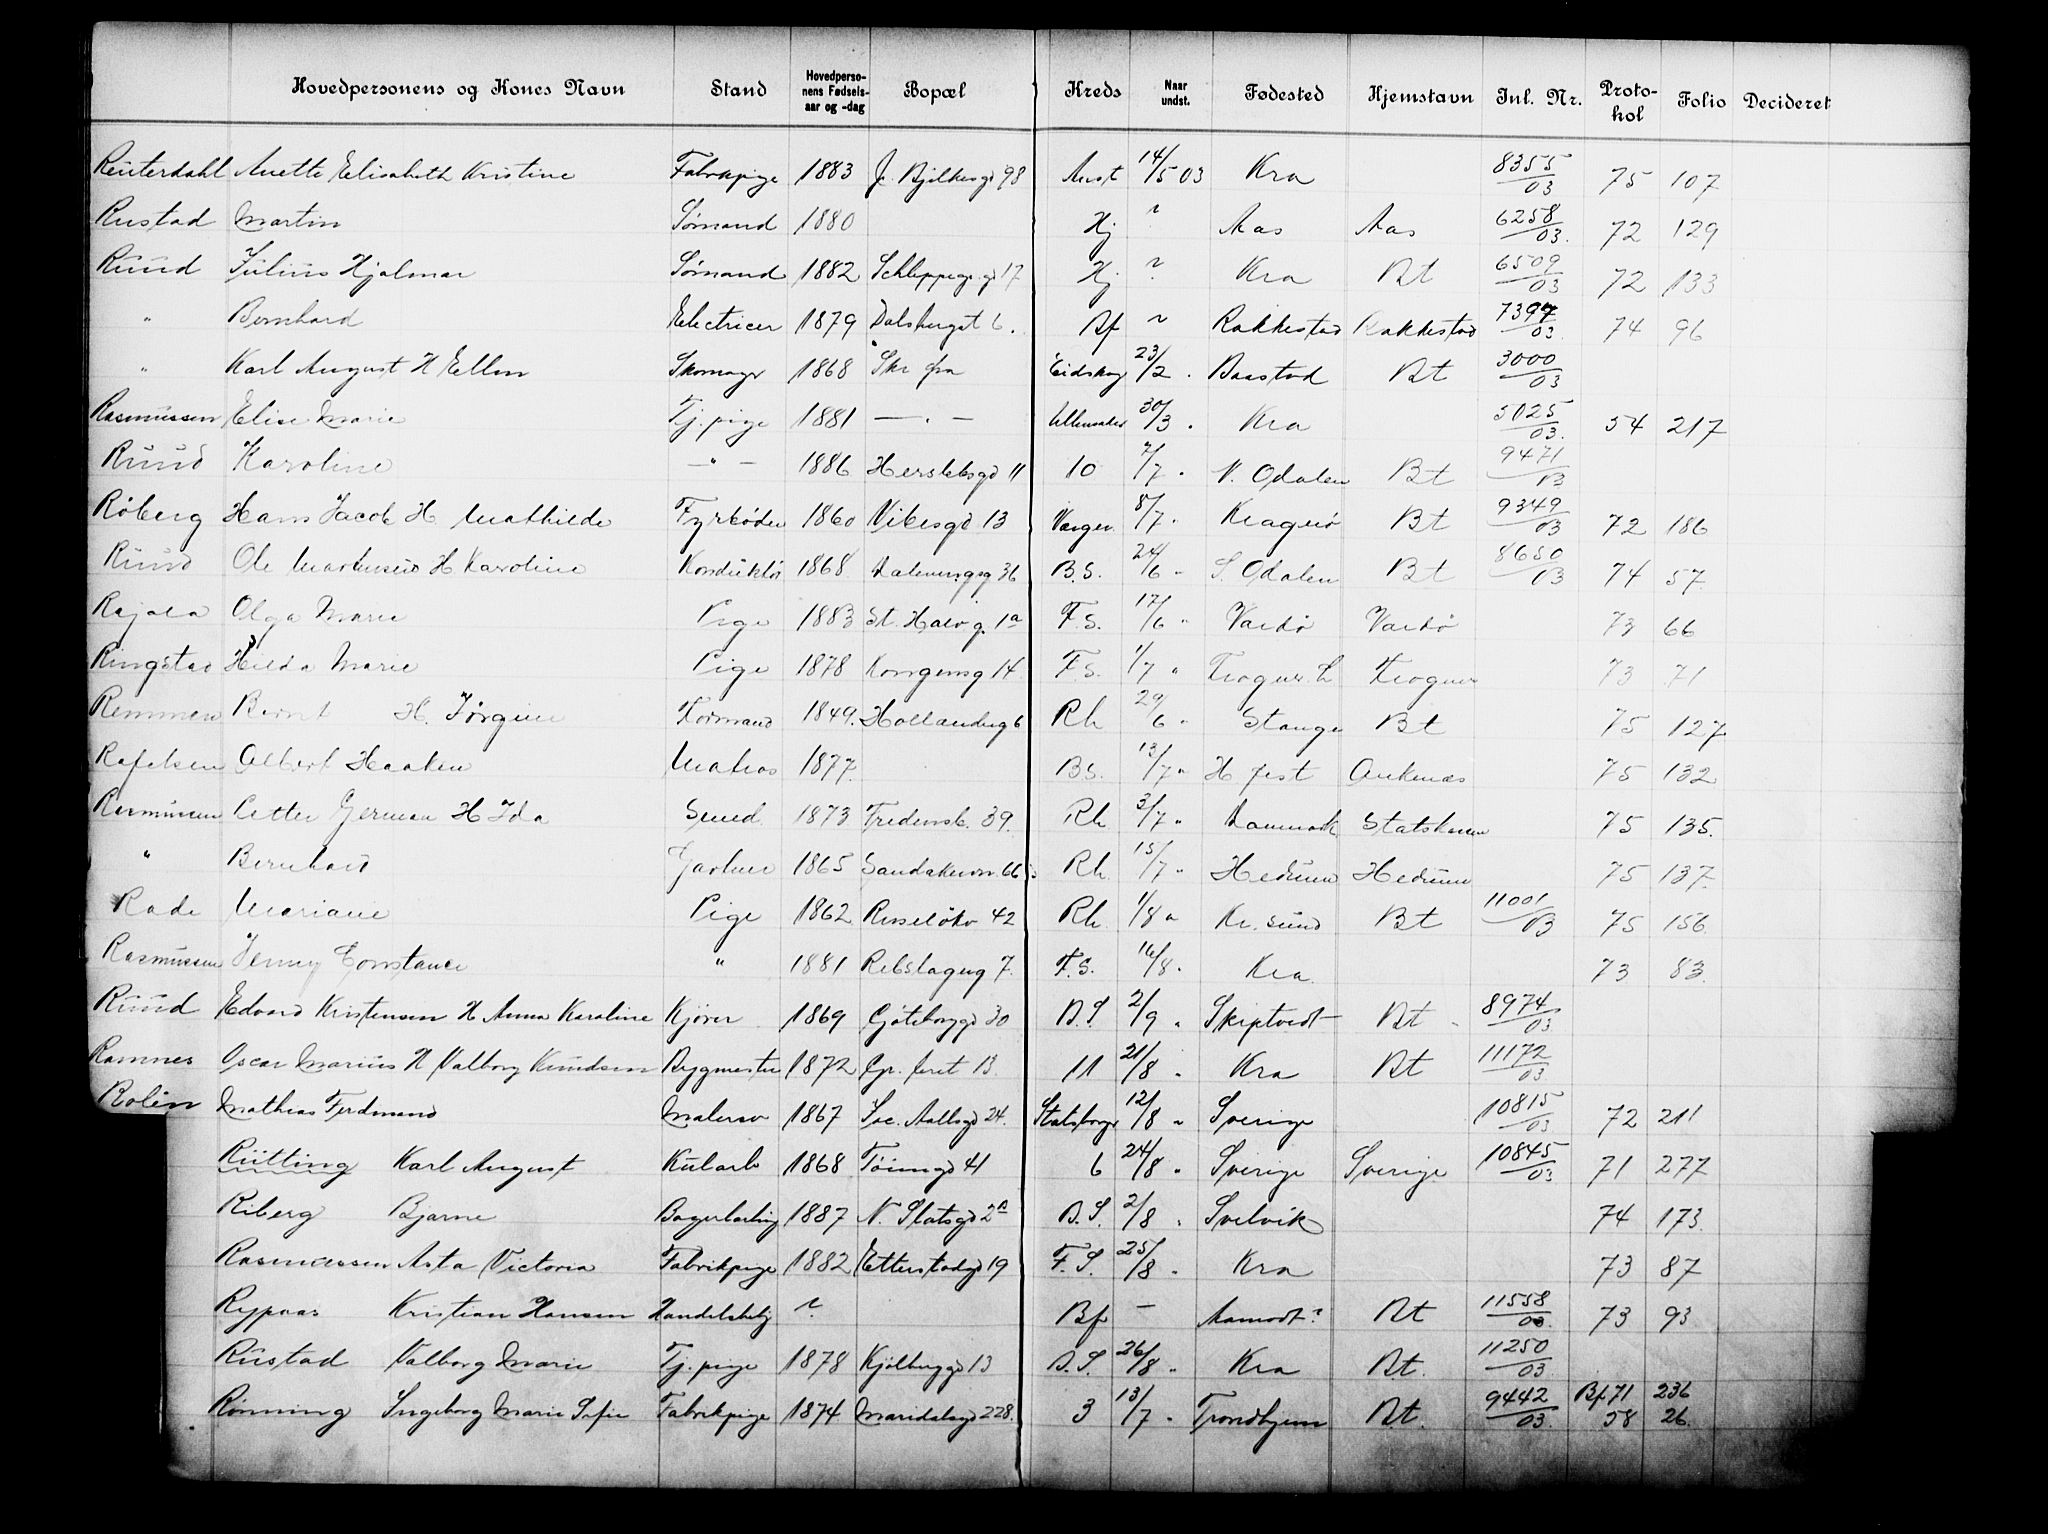 Hovedpersonens og Kones Navn Stand Hovedperso-nens Fødsels-aar og -dag Bopæl Kreds Naar undst. Fødested Hjemstavn Inl. Nr. Proto-kol Folio Decideret
Reuterdahl Anette Elisabeth Kristine Fabrikpige 1883 J. Bjelkesgd 98 Anst 14/5 03 Kra 8355/03 75 107
Rustad Martin Sømand 1880 Hj ? Aas Aas 6258/03. 72 129
Ruud Julius Hjalmar Sømand 1882 Schleppegrgd 17 Hj ? Kra Bt 6509/03 72 133
" Bernhard Electricer 1879 Dalsbergst 6. Bf " Rakkestad Rakkestad 7394/03. 74 96
" Karl August H Ellen Skomagr 1868 Skr fra Eidskog 23/2 . Baastad Bt 3000/03
Rasmussen Elise Marie Tj. pige 1881 — " — Ullensaker 30/3 . Kra 5025/03. 54 217
Ruud Karoline — " — 1886 Herslebsgd 11 10 7/7 . N. Odalen Bt 9471/03
Røberg Hans Jacob H. Mathilde Fyrbøder 1860 Vibesgd 13 Værger. 8/7 . Kragerø Bt 9349/03 72 186
Ruud Ole Martinius H Karoline Konduktør 1868 36 B.S. 24/6 " S. Odalen Bt 8650/03 74 57.
Rajala Olga Marie Pige 1883 St. Halv g. 1a F.S. 17/6 " Vardø Vardø 73 66
Ringstad Hilda Marie Pige 1878 Kongensg 14 F.S. 1/7 " Frogner Frogner 73 71
Remmen Bernt H. Jørgine Formand 1849. Hollenderg 6 Rh 29/6 " Stange Bt 75 127
Rafelsen Albert Haaken Matros 1877. B.S. 13/7 " H. fest Ankenæs 75 132
Rasmussen Petter German H Ida Smed. 1873 Fredensb. 39. Rh 3/7 " Danmark 75 135.
" Bernhard Gartner 1865 Sandakervn. 66 Rh. 15/7 " Hedrum Hedrum 75 137.
Rade Mariane Pige 1862 Russeløkv 42 Rh. 1/8 " Kr. sund Bt 11001/03 75 156
Rasmussen Jenny Constance " 1881 Rebslagerg 7. F.S. 16/8 . Kra. 73 83.
Ruud Edvard Kristensen H Anna Karoline Kjører 1869 Gøteborggd 30 B.S 2/9 " Skiptvedt Bt 8974/03
Ramnes Oscar Marius H Valborg Knudsen Bygmester 1872 Gr. feret 13. 11 21/8 " Kra Bt 11172/03
Rolin Mathias Ferdinand Malersv 1867 Jac. Aallsgd 24. Statsborgr 12/8 " Sverige 10815/03 72 211
Rütting Karl August Kularb 1868 Tøiengd 41 6 24/8 " Sverige Sverige 10845/03 71 277
Riberg Bjarne Bagerlærling 1887 N. Slotsgd 2B B.S. 2/8 . Svelvik 74 173.
Rasmussen Asta Victoria Fabrikpige 1882 Etterstadgd 19 F.S. 25/8 . Kra 73 87
Rypaas Kristian Hansen Handelsbetj ? Bf — Aamodt? Bt 11558/03. 73 93
Rustad Valborg Marie Tj. pige 1878 Kjølberggd 13 B.S. 26/8 " Kra Bt. 11250/03.
Rønning Ingeborg Marie Sofie Fabrikpige 1874 Maridalsgd 228. 3 13/7 " Trondhjem Bt. 9442/03. Bf. 71 236
58 26.